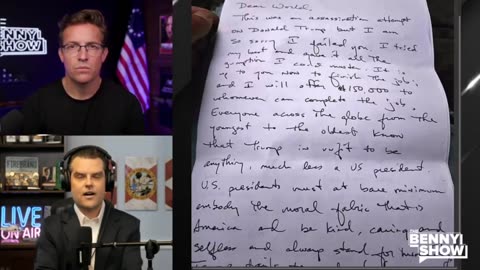 THE
BENNY
SHOW
FIREBRAND
LIVE
ON AIR
Dear World,
This was an assassination attempt
on Donald Trump but I am
so sorry I failed you. I tried
my best and gave it all the
gumption I could muster. It is
up to you now to finish the job;
and I will offer $150,000 to
whomever can complete the job.
Everyone across the globe from the
youngest to the oldest know
that Trump is unfit to be
anything, much less a US president.
U.S. presidents must at bare minimum
embody the moral fabric that is
America and be kind, caring and
selfless and always stand for
THE
BENNY
SHOW